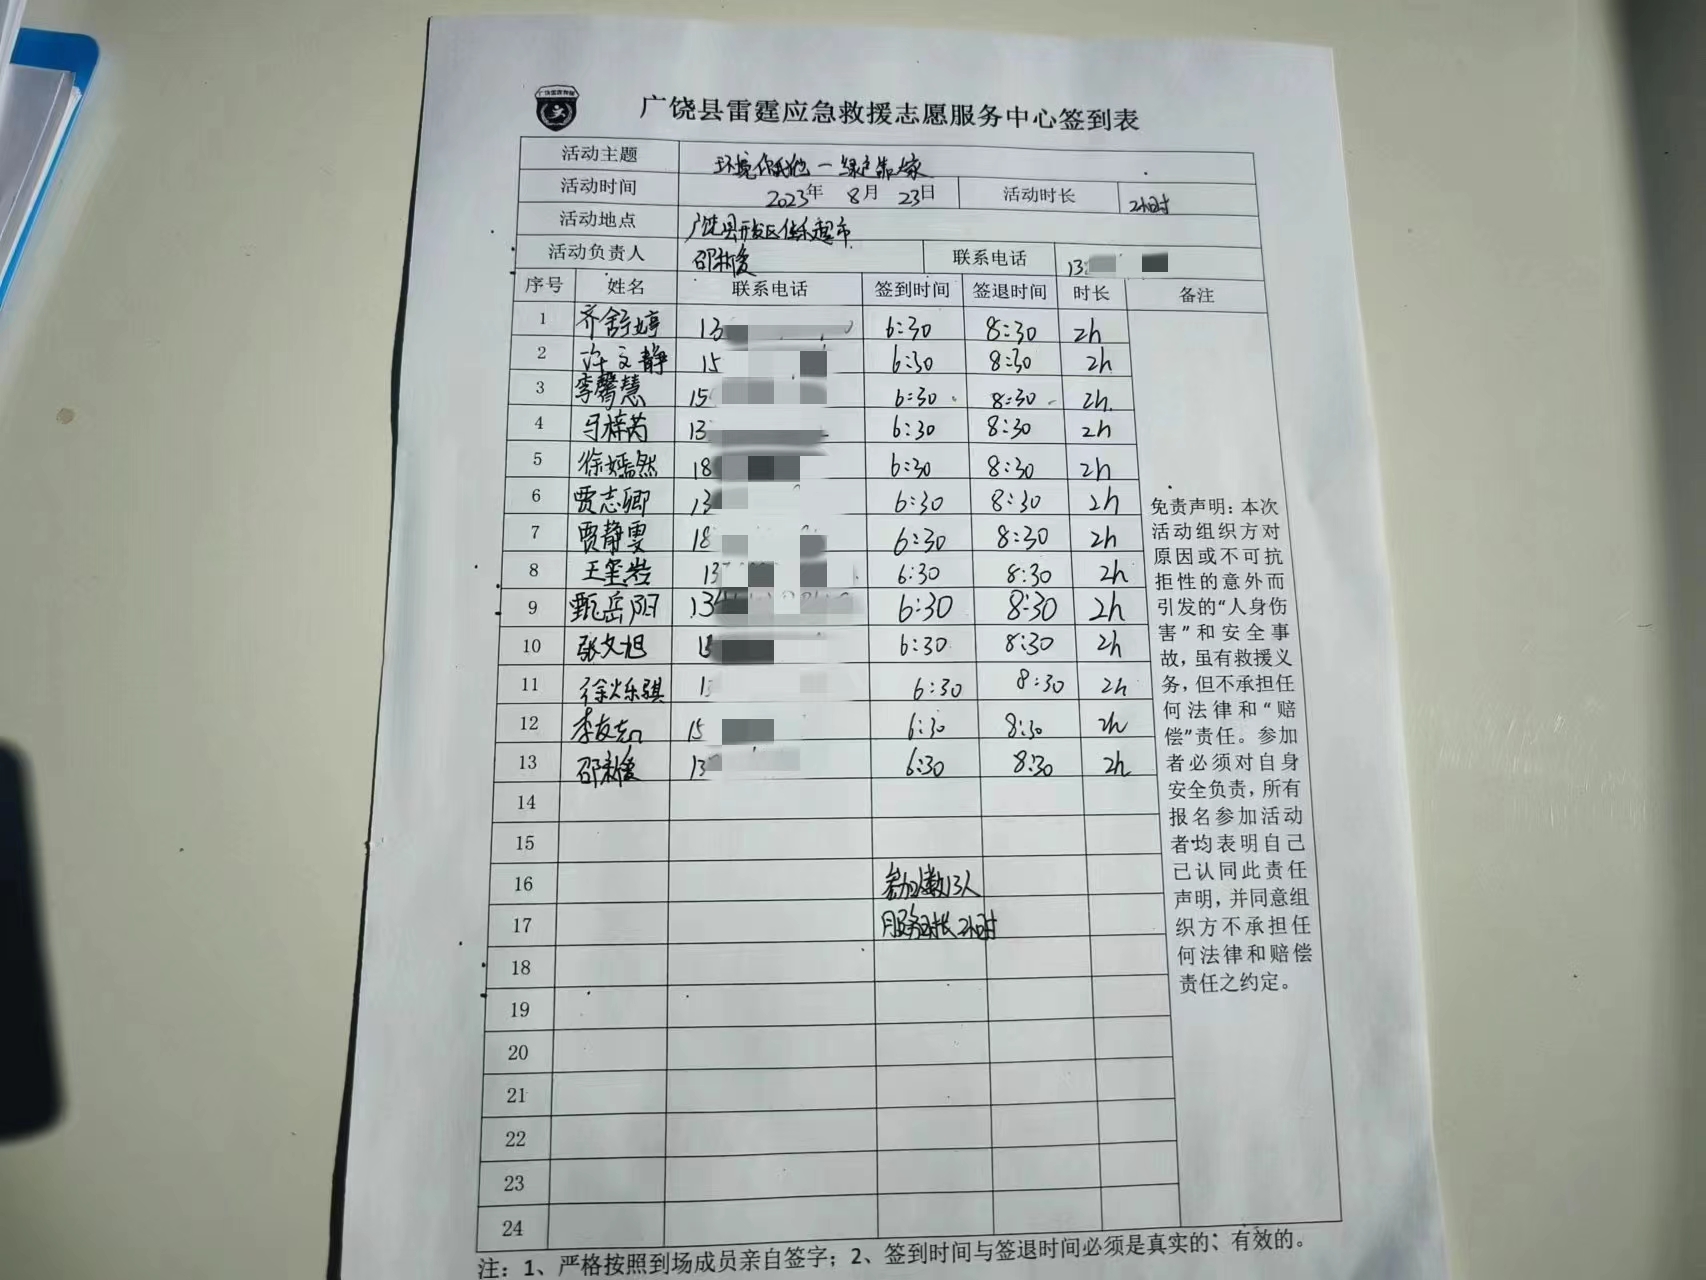 广饶县雷霆应急救援志愿服务中心签到表
活动主题 环境你我他一绿色靠大家
活动时间 2023年 8月 23日 活动时长 2小时
活动地点 广饶县开发区佳乐超市
活动负责人 联系电话 13
序号 姓名 联系电话 签到时间 签退时间 时长 备注
1 齐舒婷 13 6:30 8:30 2h
2 许文静 15 6:30 8:30 2h
3 李馨慧 15 6:30 8:30 2h
4 马梓芮 13 6:30 8:30 2h
5 徐嫣然 18 6:30 8:30 2h
6 贾志卿 13 6:30 8:30 2h
7 贾静雯 18 6:30 8:30 2h
8 13 6:30 8:30 2h
9 甄岳阳 13 6:30 8:30 2h
10 张文旭 6:30 8:30 2h
11 6:30 8:30 2h
12 李友志 15 6:30 8:30 2h
13 13 6:30 8:30 2h
14
15
16 参加人数13人
17 服务时长2小时
18
19
20
21
22
23
24
免责声明：本次
活动组织方对
原因或不可抗
拒性的意外而
引发的“人身伤
害”和安全事
故，虽有救援义
务，但不承担任
何法律和“赔
偿”责任。参加
者必须对自身
安全负责，所有
报名参加活动
者均表明自己
已认同此责任
声明，并同意组
织方不承担任
何法律和赔偿
责任之约定。
注：1、严格按照到场成员亲自签字；2、签到时间与签退时间必须是真实的、有效的。